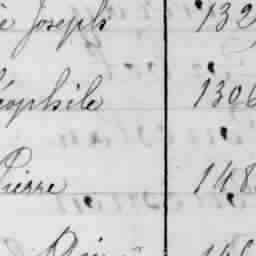 Joseph 132
éophile 1306
Pierre 148